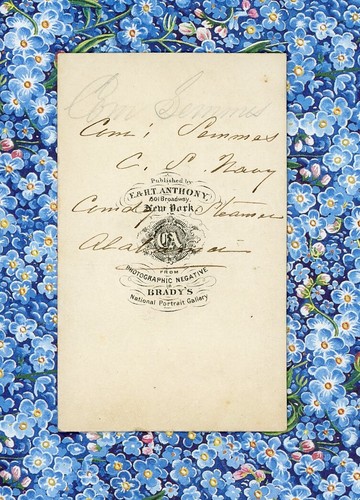 Com Semmes
Com; Semmes
C. S. Navy
Published by
E. & H.T. ANTHONY,
501 Broadway,
New York.
Comdg Steamer
E&A
Alabama
FROM
PHOTOGRAPHIC NEGATIVE
IN
BRADY'S
National Portrait Gallery